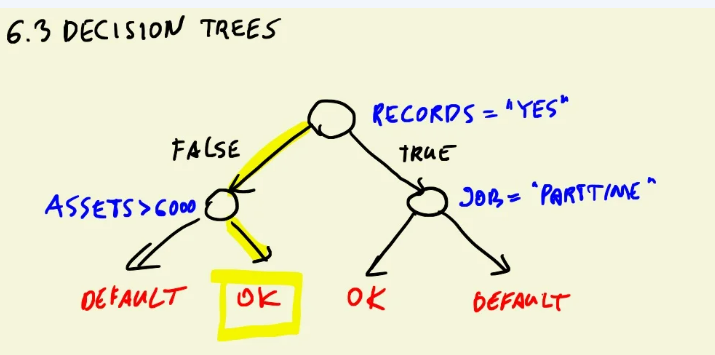 6.3 DECISION TREES
RECORDS = "YES"
FALSE
TRUE
ASSETS > 6000
JOB = "PARTTIME"
DEFAULT
OK
OK
DEFAULT